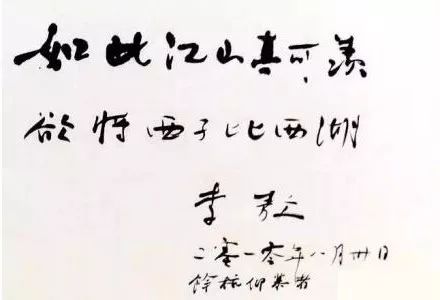 如此江山真可羡
欲将西子比西湖
李敖
二零一零年八月卅日
餘杭仰慕者